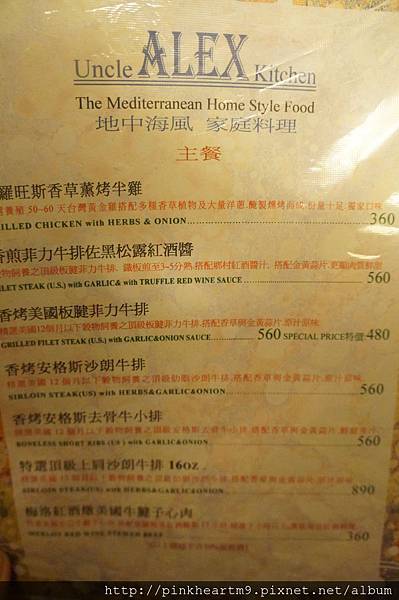 Uncle ALEX Kitchen
The Mediterranean Home Style Food
地中海風 家庭料理
主餐
羅旺斯香草薰烤半雞
50~60 天台灣黃金雞搭配多種香草植物及大量洋蔥,醃製燻烤而成,份量十足,獨家口味
ILLED CHICKEN with HERBS & ONION 360
香煎菲力牛排佐黑松露紅酒醬
穀物飼養之頂級板腱菲力牛排, 鐵板煎至3~5分熟,搭配鄉村紅酒醬汁, 搭配金黃蒜片
LET STEAK (U.S.) with GARLIC& with TRUFFLE RED WINE SAUCE 560
香烤美國板腱菲力牛排
精選美國12個月以下穀物飼養之頂級板腱菲力牛排,搭配香草與金黃蒜片,原汁原味
GRILLED FILET STEAK (U.S.) with GARLIC&ONION SAUCE 560 SPECIAL PRICE特價:480
香烤安格斯沙朗牛排
精選美國 12 個月以下穀物飼養之頂級肋脂沙朗牛排,搭配香草與金黃蒜片,原汁原味
SIRLOIN STEAK(US) with HERBS&GARLIC&ONION 560
香烤安格斯去骨牛小排
精選美國 12 個月以下穀物飼養之頂級安格斯去骨牛小排,搭配香草與金黃蒜片
BONELESS SHORT RIBS (US ) with GARLIC&ONION 560
特選頂級上肩沙朗牛排 16oz
SIRLOIN STEAK(US) with HERBS&GARLIC&ONION 890
梅洛紅酒燉美國牛腱子心肉
MERLOT RED WINE STEWED BEEF 360
http://pinkheartm9.pixnet.net/album